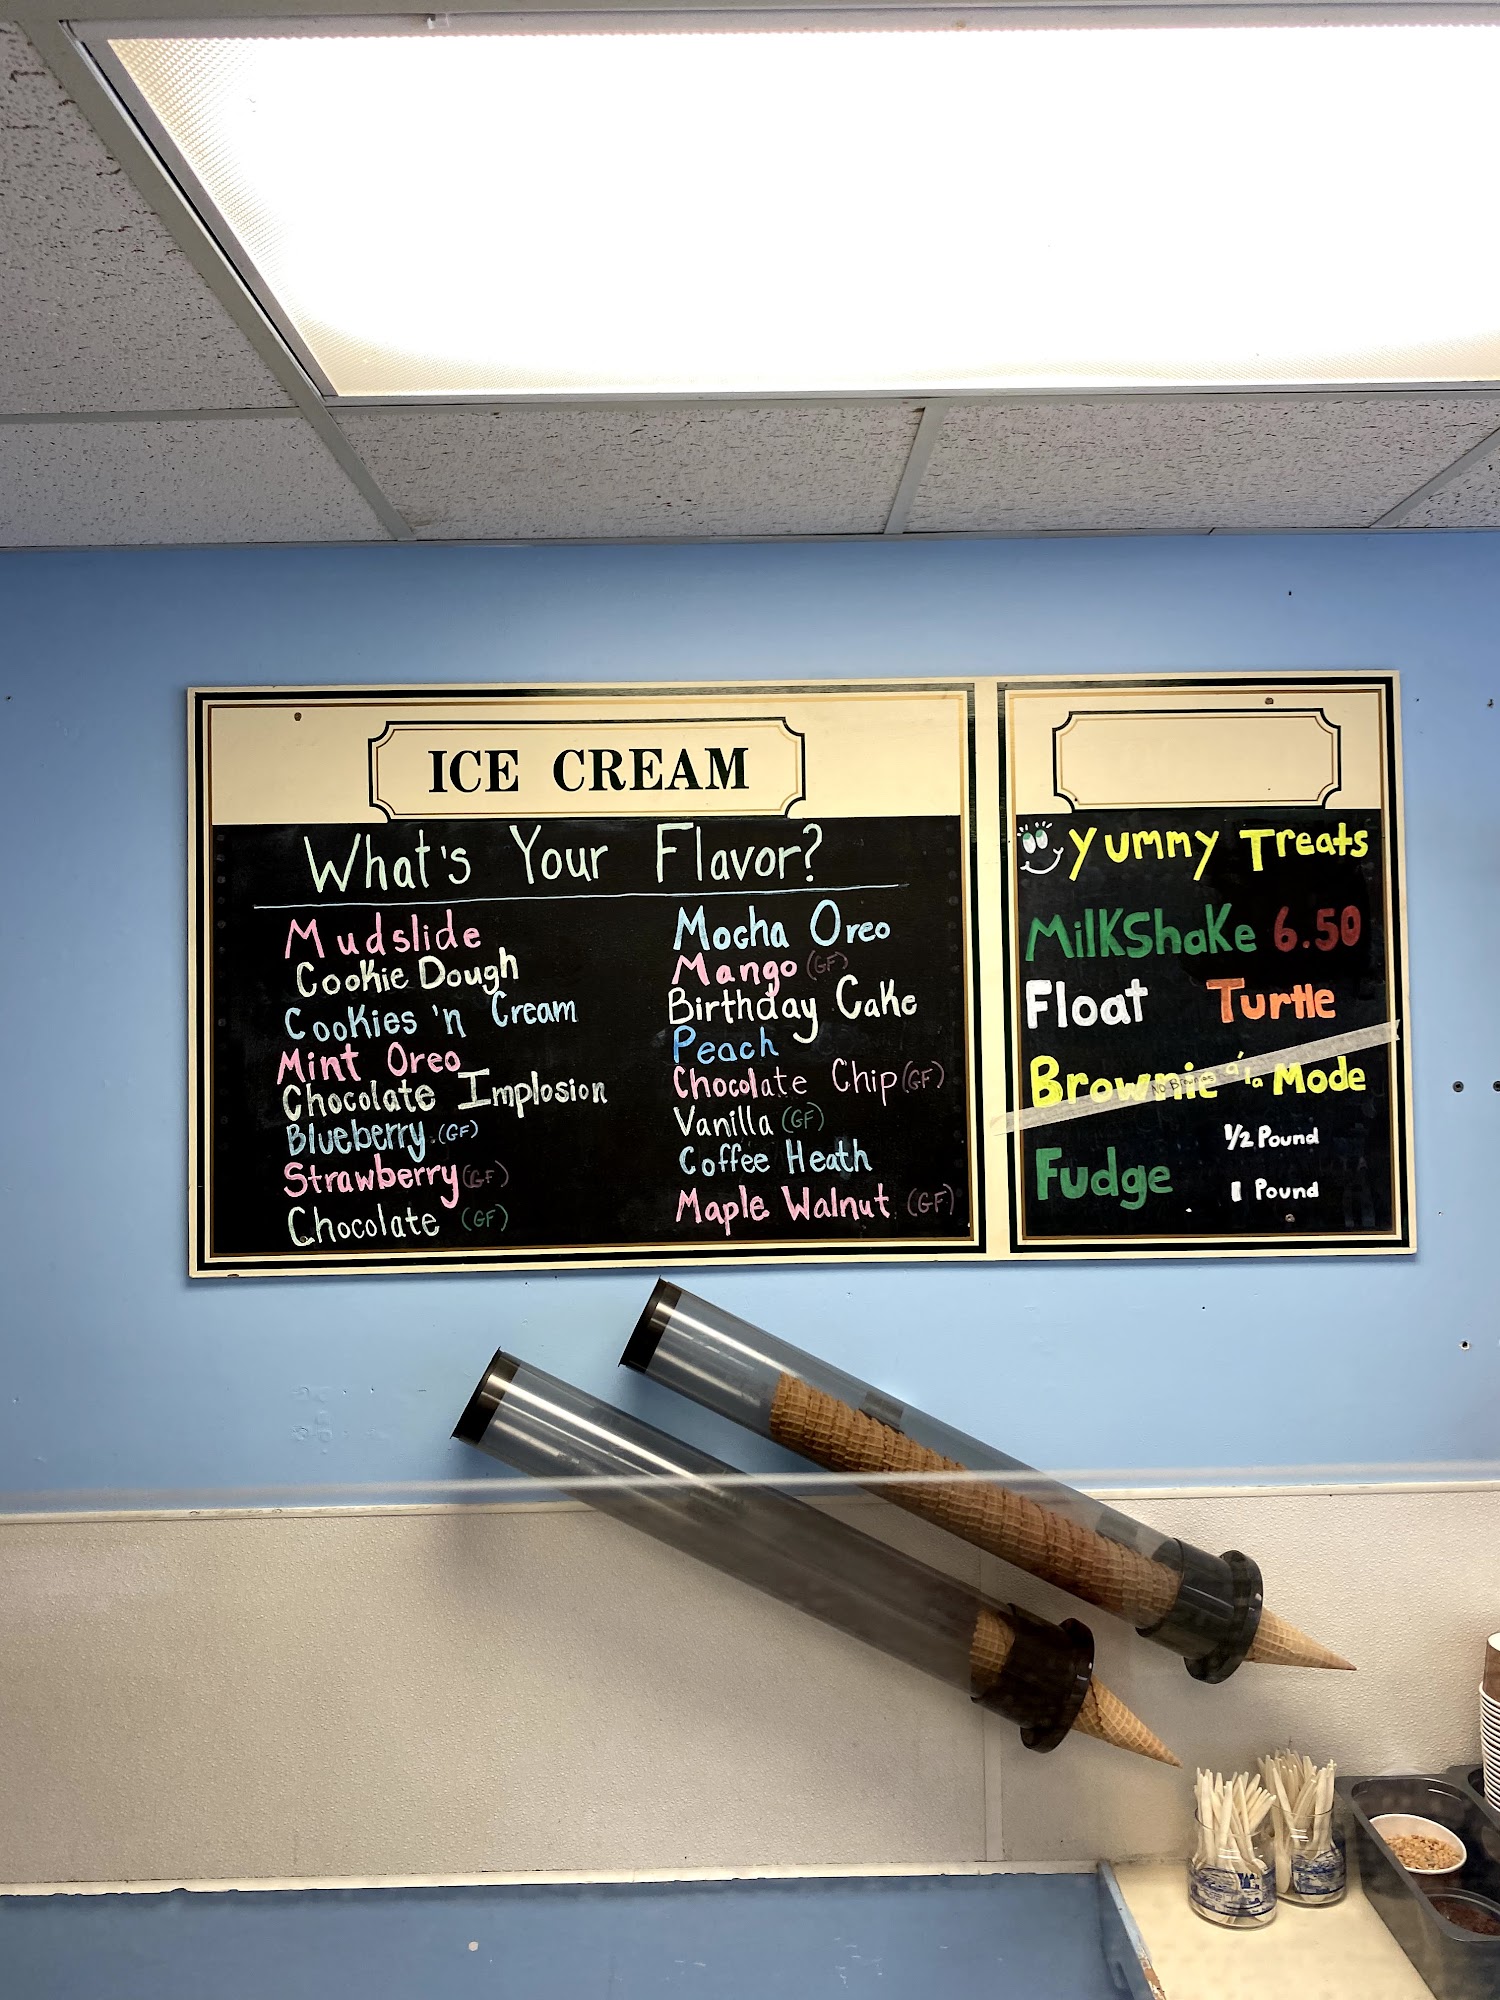 ICE CREAM
What's Your Flavor?
Mudslide
Cookie Dough
Cookies 'n Cream
Mint Oreo
Chocolate Implosion
Blueberry (GF)
Strawberry (GF)
Chocolate (GF)
Mocha Oreo
Mango (GF)
Birthday Cake
Peach
Chocolate Chip (GF)
Vanilla (GF)
Coffee Heath
Maple Walnut (GF)
Yummy Treats
MilKShaKe 6.50
Float Turtle
Brownie a' la Mode
No Brownies
Fudge
1/2 Pound
1 Pound